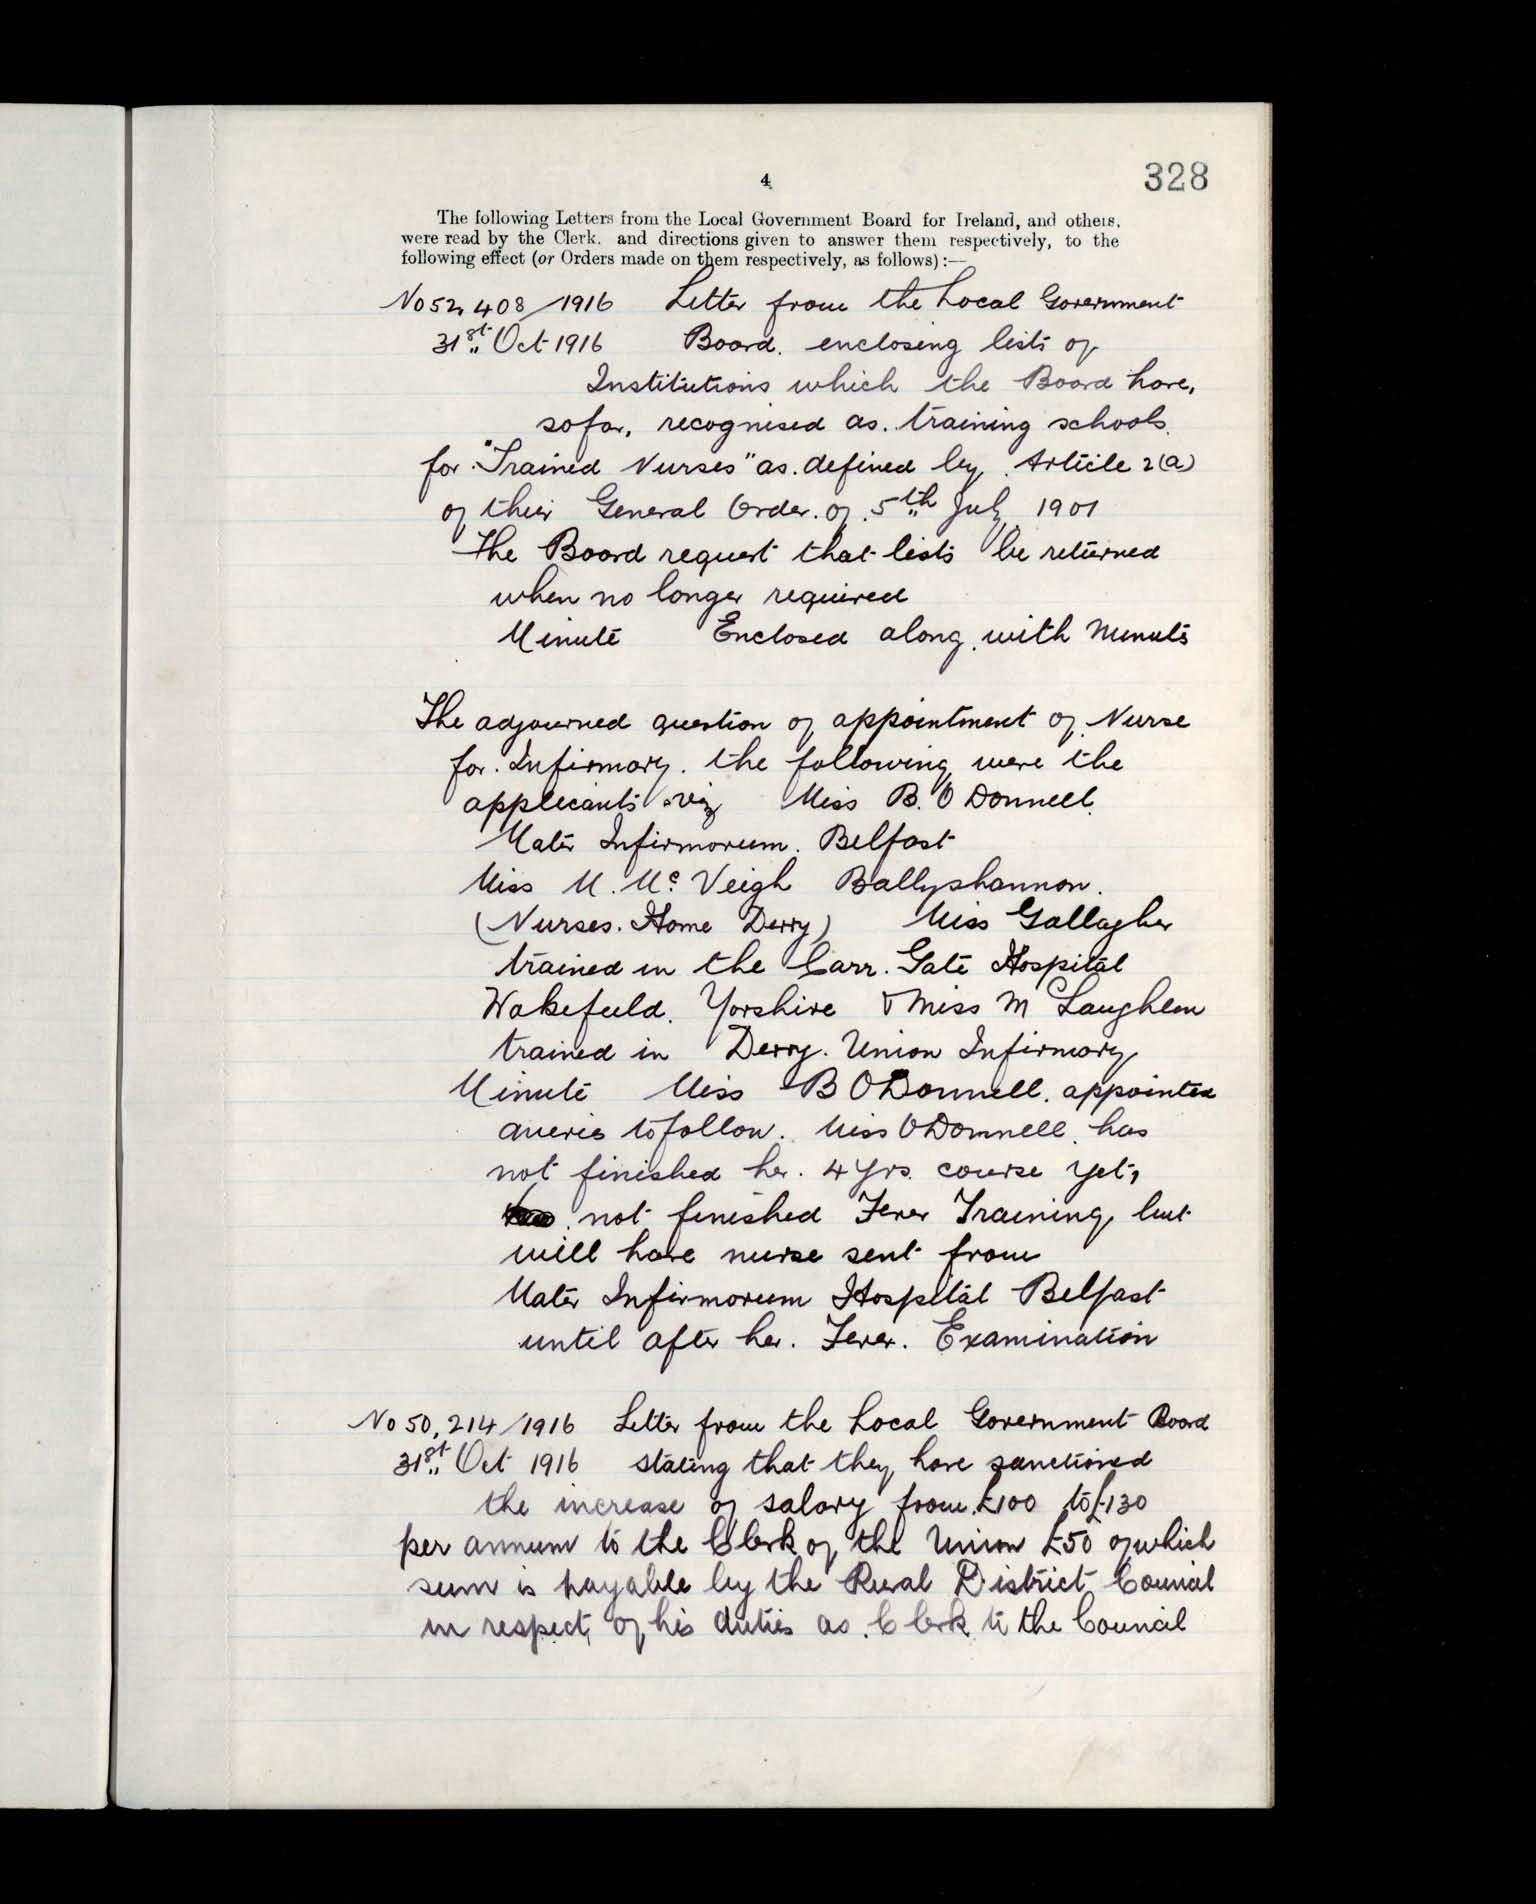 328
4
The following Letters from the Local Government Board for Ireland, and others,
were read by the Clerk. and directions given to answer them respectively, to the
following effect (or Orders made on them respectively, as follows):—
No 52,408/1916 Letter from the Local Government
31st Oct 1916 Board. enclosing lists of
Institutions which the Board have,
so far, recognised as. training schools
for "Trained Nurses" as. defined by Article 2(a)
of their General Order. of. 5th July 1901
The Board request that lists be returned
when no longer required
Minute Enclosed along with Minutes
The adjourned question of appointment of Nurse
for. Infirmary. the following were the
applicants viz Miss B. O Donnell.
Mater Infirmorum. Belfast
Miss M. Mc Veigh Ballyshannon.
(Nurses. Home Derry) Miss Gallagher
trained in the Carr. Gate Hospital
Wakefield. Yorshire & Miss McLaughlin
trained in Derry. Union Infirmary
Minute Miss B O'Donnell. appointed
queries to follow. Miss O'Donnell has
not finished her. 4 yrs. course yet,
not finished Fever Training, but
will have nurse sent from
Mater Infirmorum Hospital Belfast
until after her. Fever. Examination
No 50,214/1916 Letter from the Local Government Board
31st Oct 1916 stating that they have sanctioned
the increase of salary from £100 to £130
per annum to the Clerk of the Union £50 of which
sum is payable by the Rural District Council
in respect of his duties as. Clerk to the Council